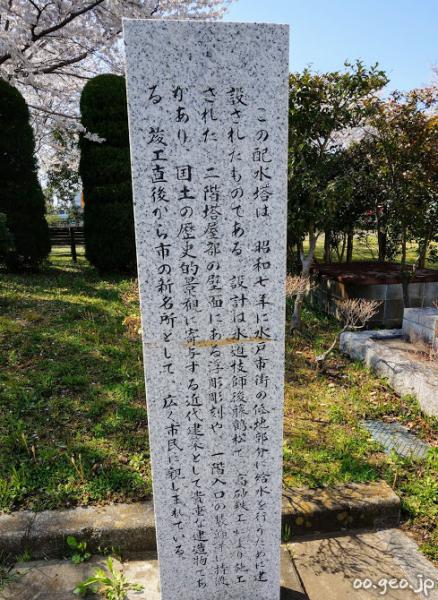 この配水塔は、昭和七年に水戸市街の低地部分に給水を行うために建
設されたものである。設計は水道技師後藤鶴松で、高砂鉄工により施工
された。二階塔屋部の壁面にある浮彫彫刻や、一階入口の装飾等に特徴
があり、国土の歴史的景観に寄与する近代建築として貴重な建造物であ
る。竣工直後から市の新名所として、広く市民に親しまれている。
oo.geo.jp